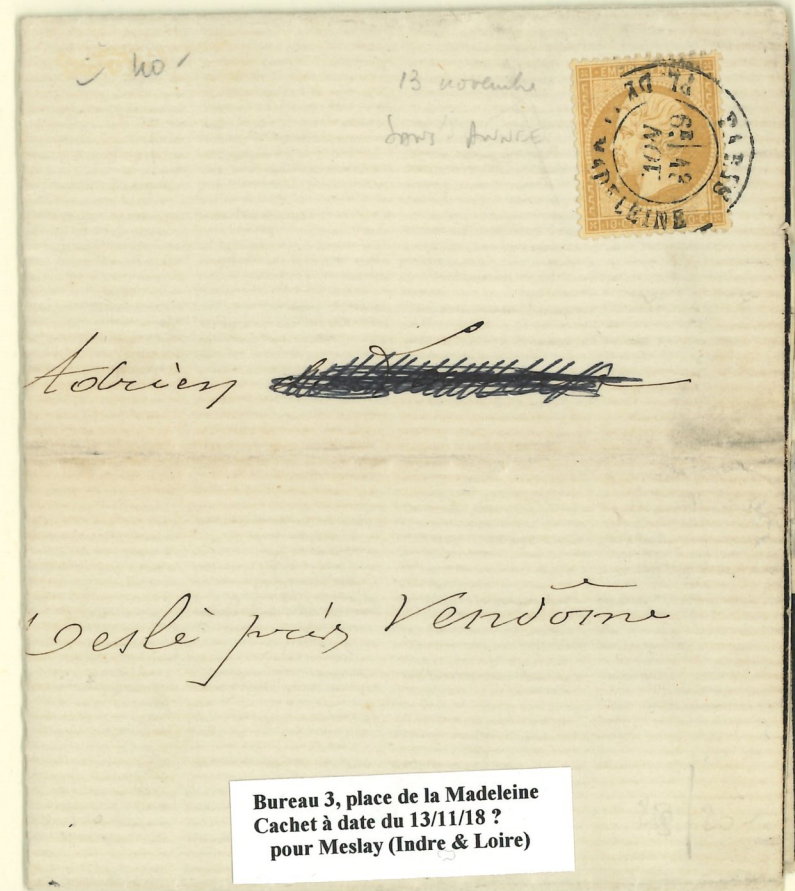 40
13 novembre
SANS ANNEE
PARIS
PL. DE LA MADELEINE
6E 13
NOV.
10 C
Adrien
Veslé près Vendôme
Bureau 3, place de la Madeleine
Cachet à date du 13/11/18 ?
pour Meslay (Indre & Loire)